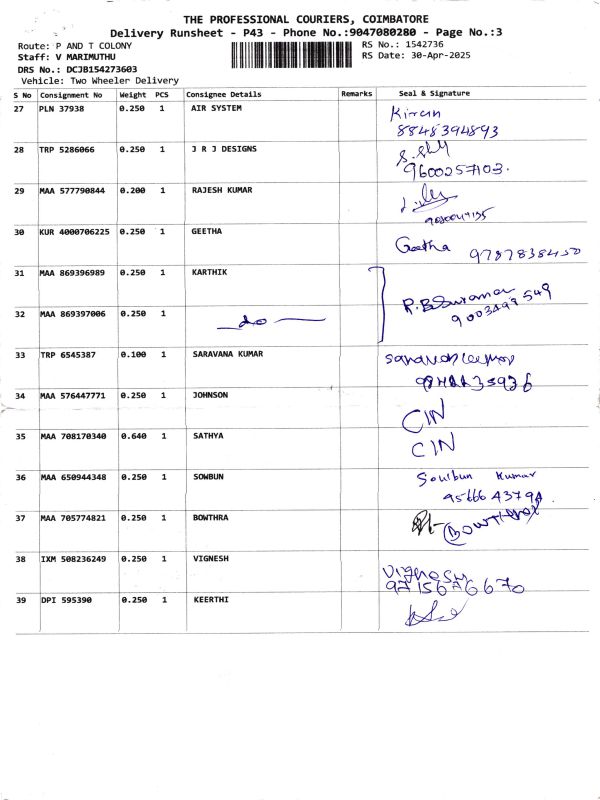 THE PROFESSIONAL COURIERS, COIMBATORE
Delivery Runsheet - P43 - Phone No.:9047080280 - Page No.:3
Route: P AND T COLONY
RS No.: 1542736
Staff: V MARIMUTHU
RS Date: 30-Apr-2025
DRS No.: DCJB154273603
Vehicle: Two Wheeler Delivery
S No Consignment No Weight PCS Consignee Details Remarks Seal & Signature
27 PLN 37938 0.250 1 AIR SYSTEM Kiran
8848394893
28 TRP 5286066 0.250 1 J R J DESIGNS
9600257103.
29 MAA 577790844 0.200 1 RAJESH KUMAR
30 KUR 4000706225 0.250 1 GEETHA Geetha 9787838450
31 MAA 869396989 0.250 1 KARTHIK
32 MAA 869397006 0.250 1 do
9003499549
33 TRP 6545387 0.100 1 SARAVANA KUMAR
34 MAA 576447771 0.250 1 JOHNSON CIN
35 MAA 708170340 0.640 1 SATHYA CIN
36 MAA 650944348 0.250 1 SOWBUN Sowbun Kumar
37 MAA 705774821 0.250 1 BOWTHRA
38 IXM 508236249 0.250 1 VIGNESH Vignesh
9715676670
39 DPI 595390 0.250 1 KEERTHI